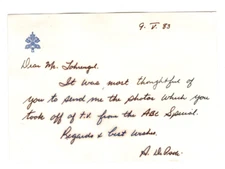 9. V. 83
Dear Mr.
It was most thoughtful of
you to send me the photos which you
took off of t.v. from the ABC Special.
Regards & best wishes,